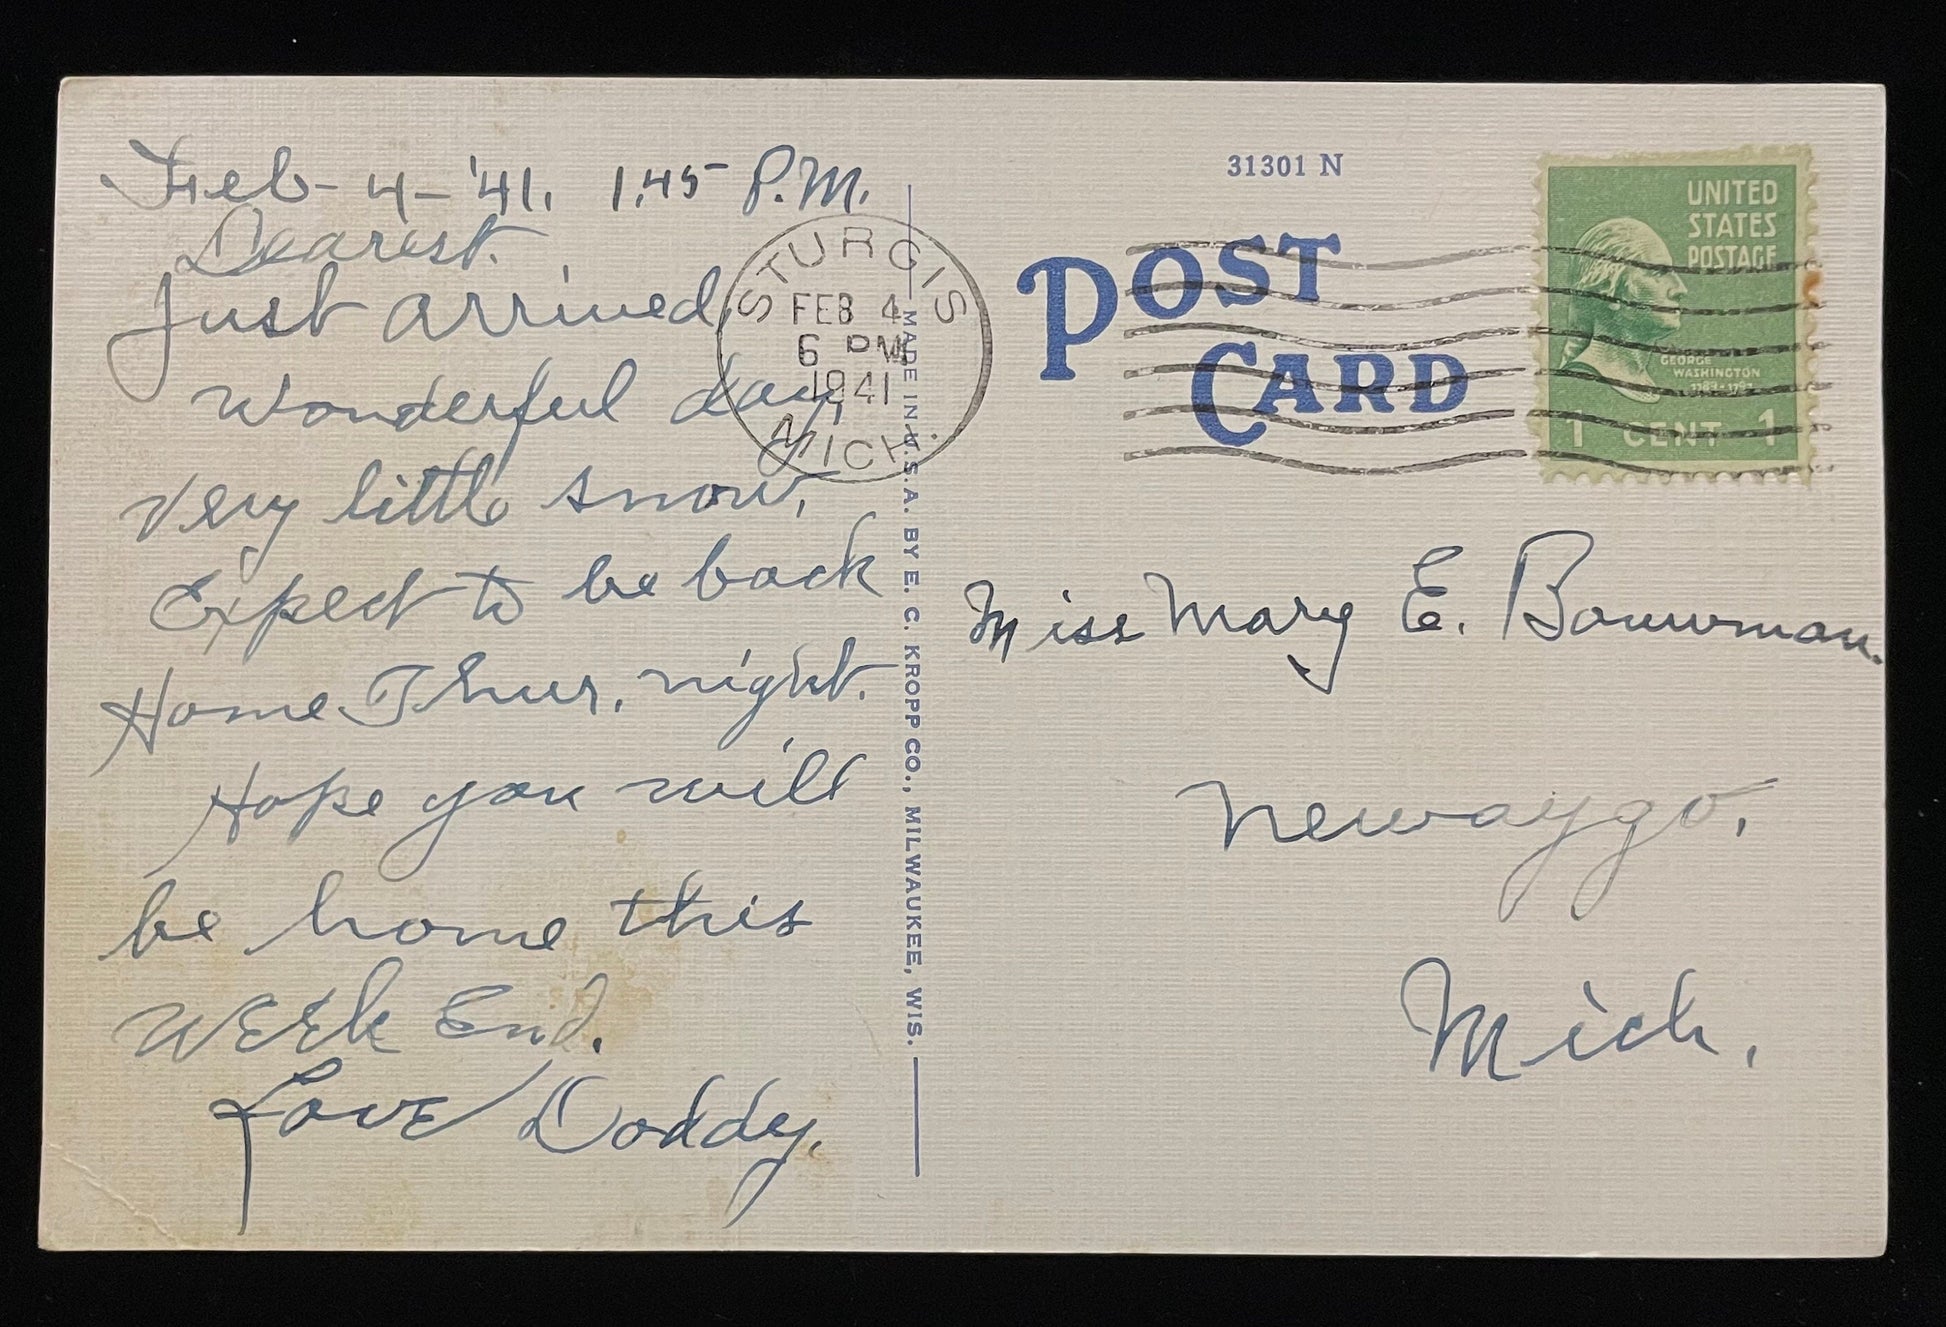 Feb - 4 - '41. 1.45 P.M.
Dearest.
Just arrived,
Wonderful day,
Very little snow,
Expect to be back
Home Thur. night.
Hope you will
be home this
WEEk End.
Love Daddy.
STURGIS
FEB 4
6 PM
1941
MICH.
MADE IN U.S.A. BY E. C. KROPP CO., MILWAUKEE, WIS.
31301 N
POST
CARD
UNITED
STATES
POSTAGE
GEORGE
WASHINGTON
1789-1797
1 CENT 1
Miss Mary E. Bouwman.
Newaygo,
Mich.